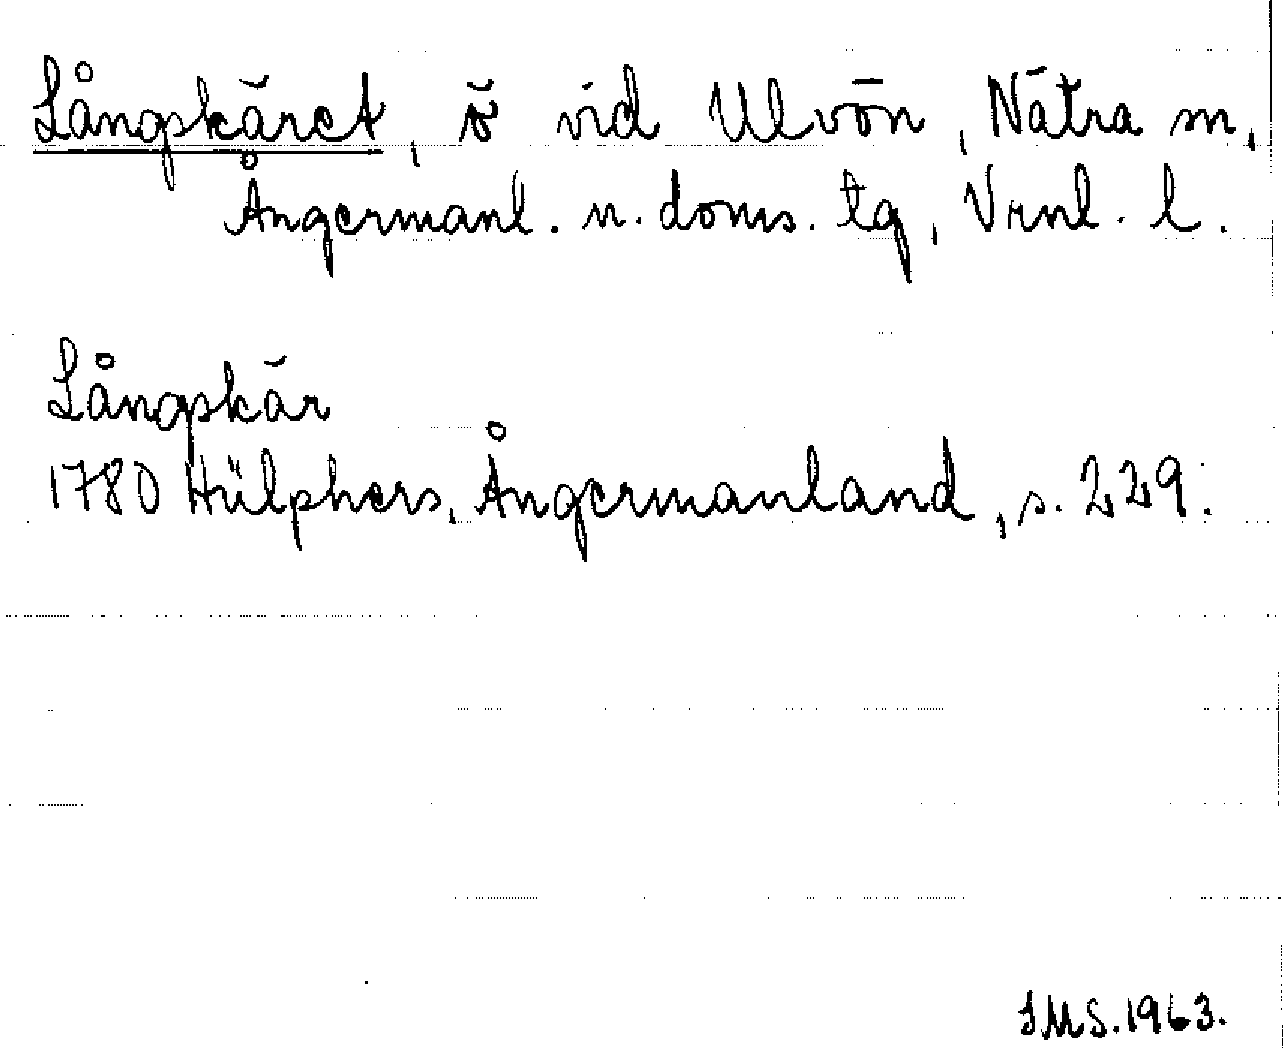 Långskäret, ö vid Ulvön, Nätra sn,
Ångermanl. n. doms. tg, Vrnl. l.
Långskär
1780 Hülphers, Ångermanland, s. 229.
SMS. 1963.